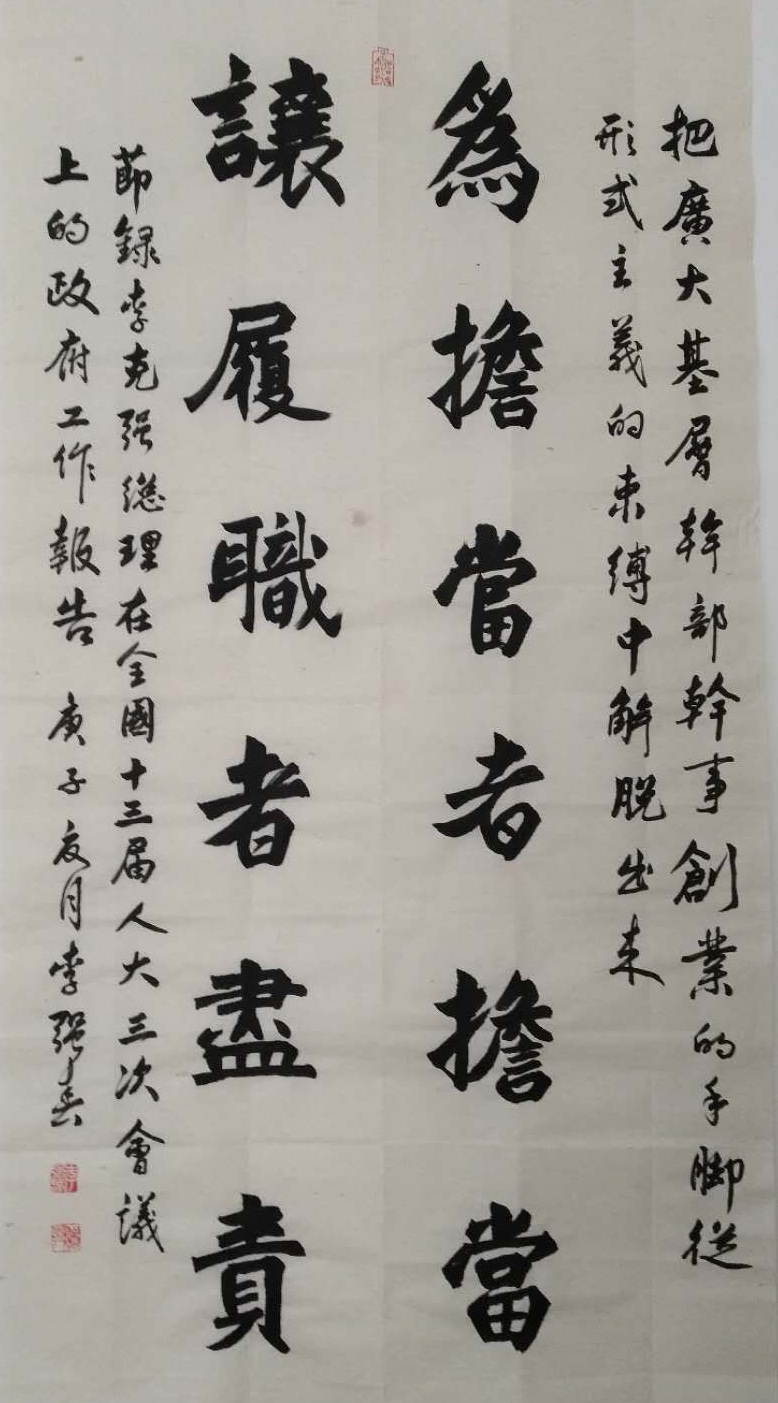 把廣大基層幹部幹事創業的手脚從
形式主義的束縛中解脱出来
爲擔當者擔當
讓履職者盡責
節録李克强總理在全國十三届人大三次會議
上的政府工作報告 庚子夏月李强